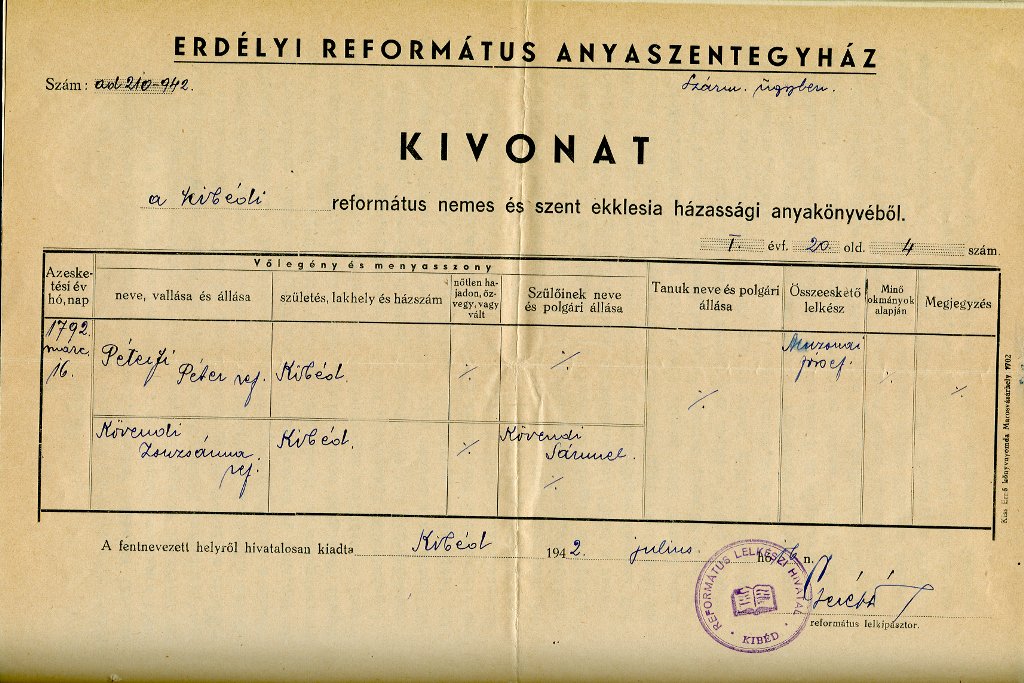 ERDÉLYI REFORMÁTUS ANYASZENTEGYHÁZ
Szám: ad 210-942.
Szárm. ügyben.
KIVONAT
a Kibédi református nemes és szent ekklesia házassági anyakönyvéből.
I. évf. 20 old. 4 szám.
Azeske-
tési év
hó, nap
Vőlegény és menyasszony
neve, vallása és állása
születés, lakhely és házszám
nőtlen ha-
jadon, öz-
vegy, vagy
vált
Szülőinek neve
és polgári állása
Tanuk neve és polgári
állása
Összeeskető
lelkész
Minő
okmányok
alapján
Megjegyzés
1792
marc.
16.
Péterfi
Péter ref.
Kibéd.
·/.
·/.
·/.
József.
·/.
·/.
Kövendi
Zsuzsánna
ref.
Kibéd.
·/.
Kövendi
Sámuel.
·/.
A fentnevezett helyről hivatalosan kiadta Kibéd 1942. julius. hó 16 n.
REFORMÁTUS LELKÉSZI HIVATAL
KIBÉD
református lelkipásztor.
Kiss Ernő könyvnyomda Marosvásárhely 1702